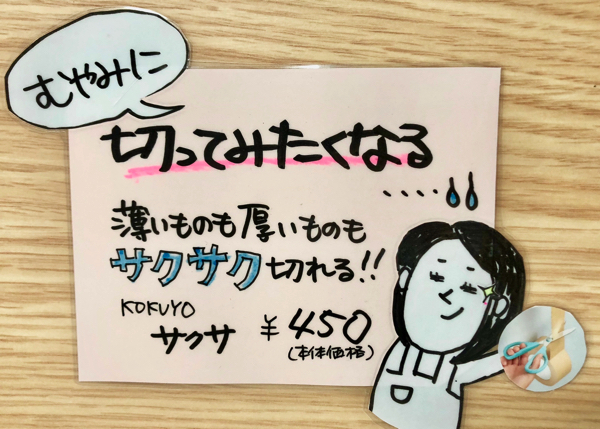 むやみに
切ってみたくなる
....
薄いものも厚いものも
サクサク切れる!!
KOKUYO
サクサ ¥450
(本体価格)